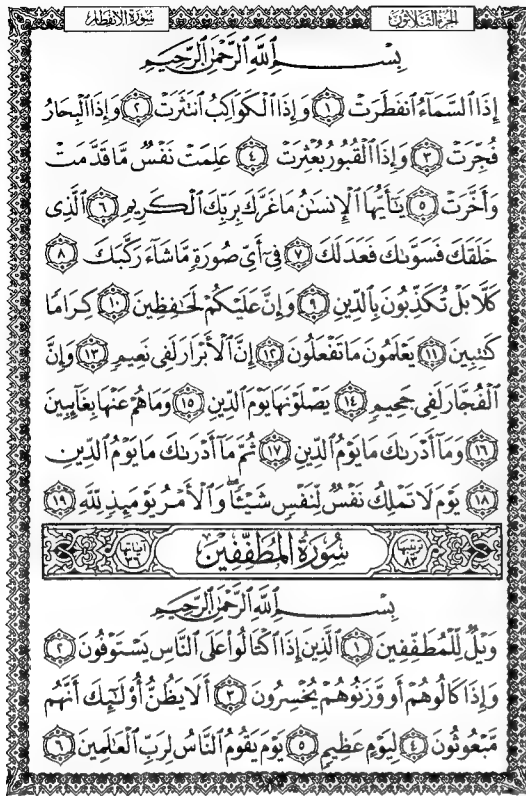 سورة الانفطار الجزء الثلاثون
بِسْمِ ٱللَّهِ ٱلرَّحْمَٰنِ ٱلرَّحِيمِ
إِذَا ٱلسَّمَآءُ ٱنفَطَرَتْ ١ وَإِذَا ٱلْكَوَاكِبُ ٱنتَثَرَتْ ٢ وَإِذَا ٱلْبِحَارُ
فُجِّرَتْ ٣ وَإِذَا ٱلْقُبُورُ بُعْثِرَتْ ٤ عَلِمَتْ نَفْسٌ مَّا قَدَّمَتْ
وَأَخَّرَتْ ٥ يَٰٓأَيُّهَا ٱلْإِنسَٰنُ مَا غَرَّكَ بِرَبِّكَ ٱلْكَرِيمِ ٦ ٱلَّذِى
خَلَقَكَ فَسَوَّىٰكَ فَعَدَلَكَ ٧ فِىٓ أَىِّ صُورَةٍ مَّا شَآءَ رَكَّبَكَ ٨
كَلَّا بَلْ تُكَذِّبُونَ بِٱلدِّينِ ٩ وَإِنَّ عَلَيْكُمْ لَحَٰفِظِينَ ١٠ كِرَامًا
كَٰتِبِينَ ١١ يَعْلَمُونَ مَا تَفْعَلُونَ ١٢ إِنَّ ٱلْأَبْرَارَ لَفِى نَعِيمٍ ١٣ وَإِنَّ
ٱلْفُجَّارَ لَفِى جَحِيمٍ ١٤ يَصْلَوْنَهَا يَوْمَ ٱلدِّينِ ١٥ وَمَا هُمْ عَنْهَا بِغَآئِبِينَ
١٦ وَمَآ أَدْرَىٰكَ مَا يَوْمُ ٱلدِّينِ ١٧ ثُمَّ مَآ أَدْرَىٰكَ مَا يَوْمُ ٱلدِّينِ
١٨ يَوْمَ لَا تَمْلِكُ نَفْسٌ لِّنَفْسٍ شَيْـًٔا ۖ وَٱلْأَمْرُ يَوْمَئِذٍ لِّلَّهِ ١٩
ترتيبها ٨٣ سُورَةُ المُطَفِّفِين آياتها ٣٦
بِسْمِ ٱللَّهِ ٱلرَّحْمَٰنِ ٱلرَّحِيمِ
وَيْلٌ لِّلْمُطَفِّفِينَ ١ ٱلَّذِينَ إِذَا ٱكْتَالُوا۟ عَلَى ٱلنَّاسِ يَسْتَوْفُونَ ٢
وَإِذَا كَالُوهُمْ أَو وَّزَنُوهُمْ يُخْسِرُونَ ٣ أَلَا يَظُنُّ أُو۟لَٰٓئِكَ أَنَّهُم
مَّبْعُوثُونَ ٤ لِيَوْمٍ عَظِيمٍ ٥ يَوْمَ يَقُومُ ٱلنَّاسُ لِرَبِّ ٱلْعَٰلَمِينَ ٦